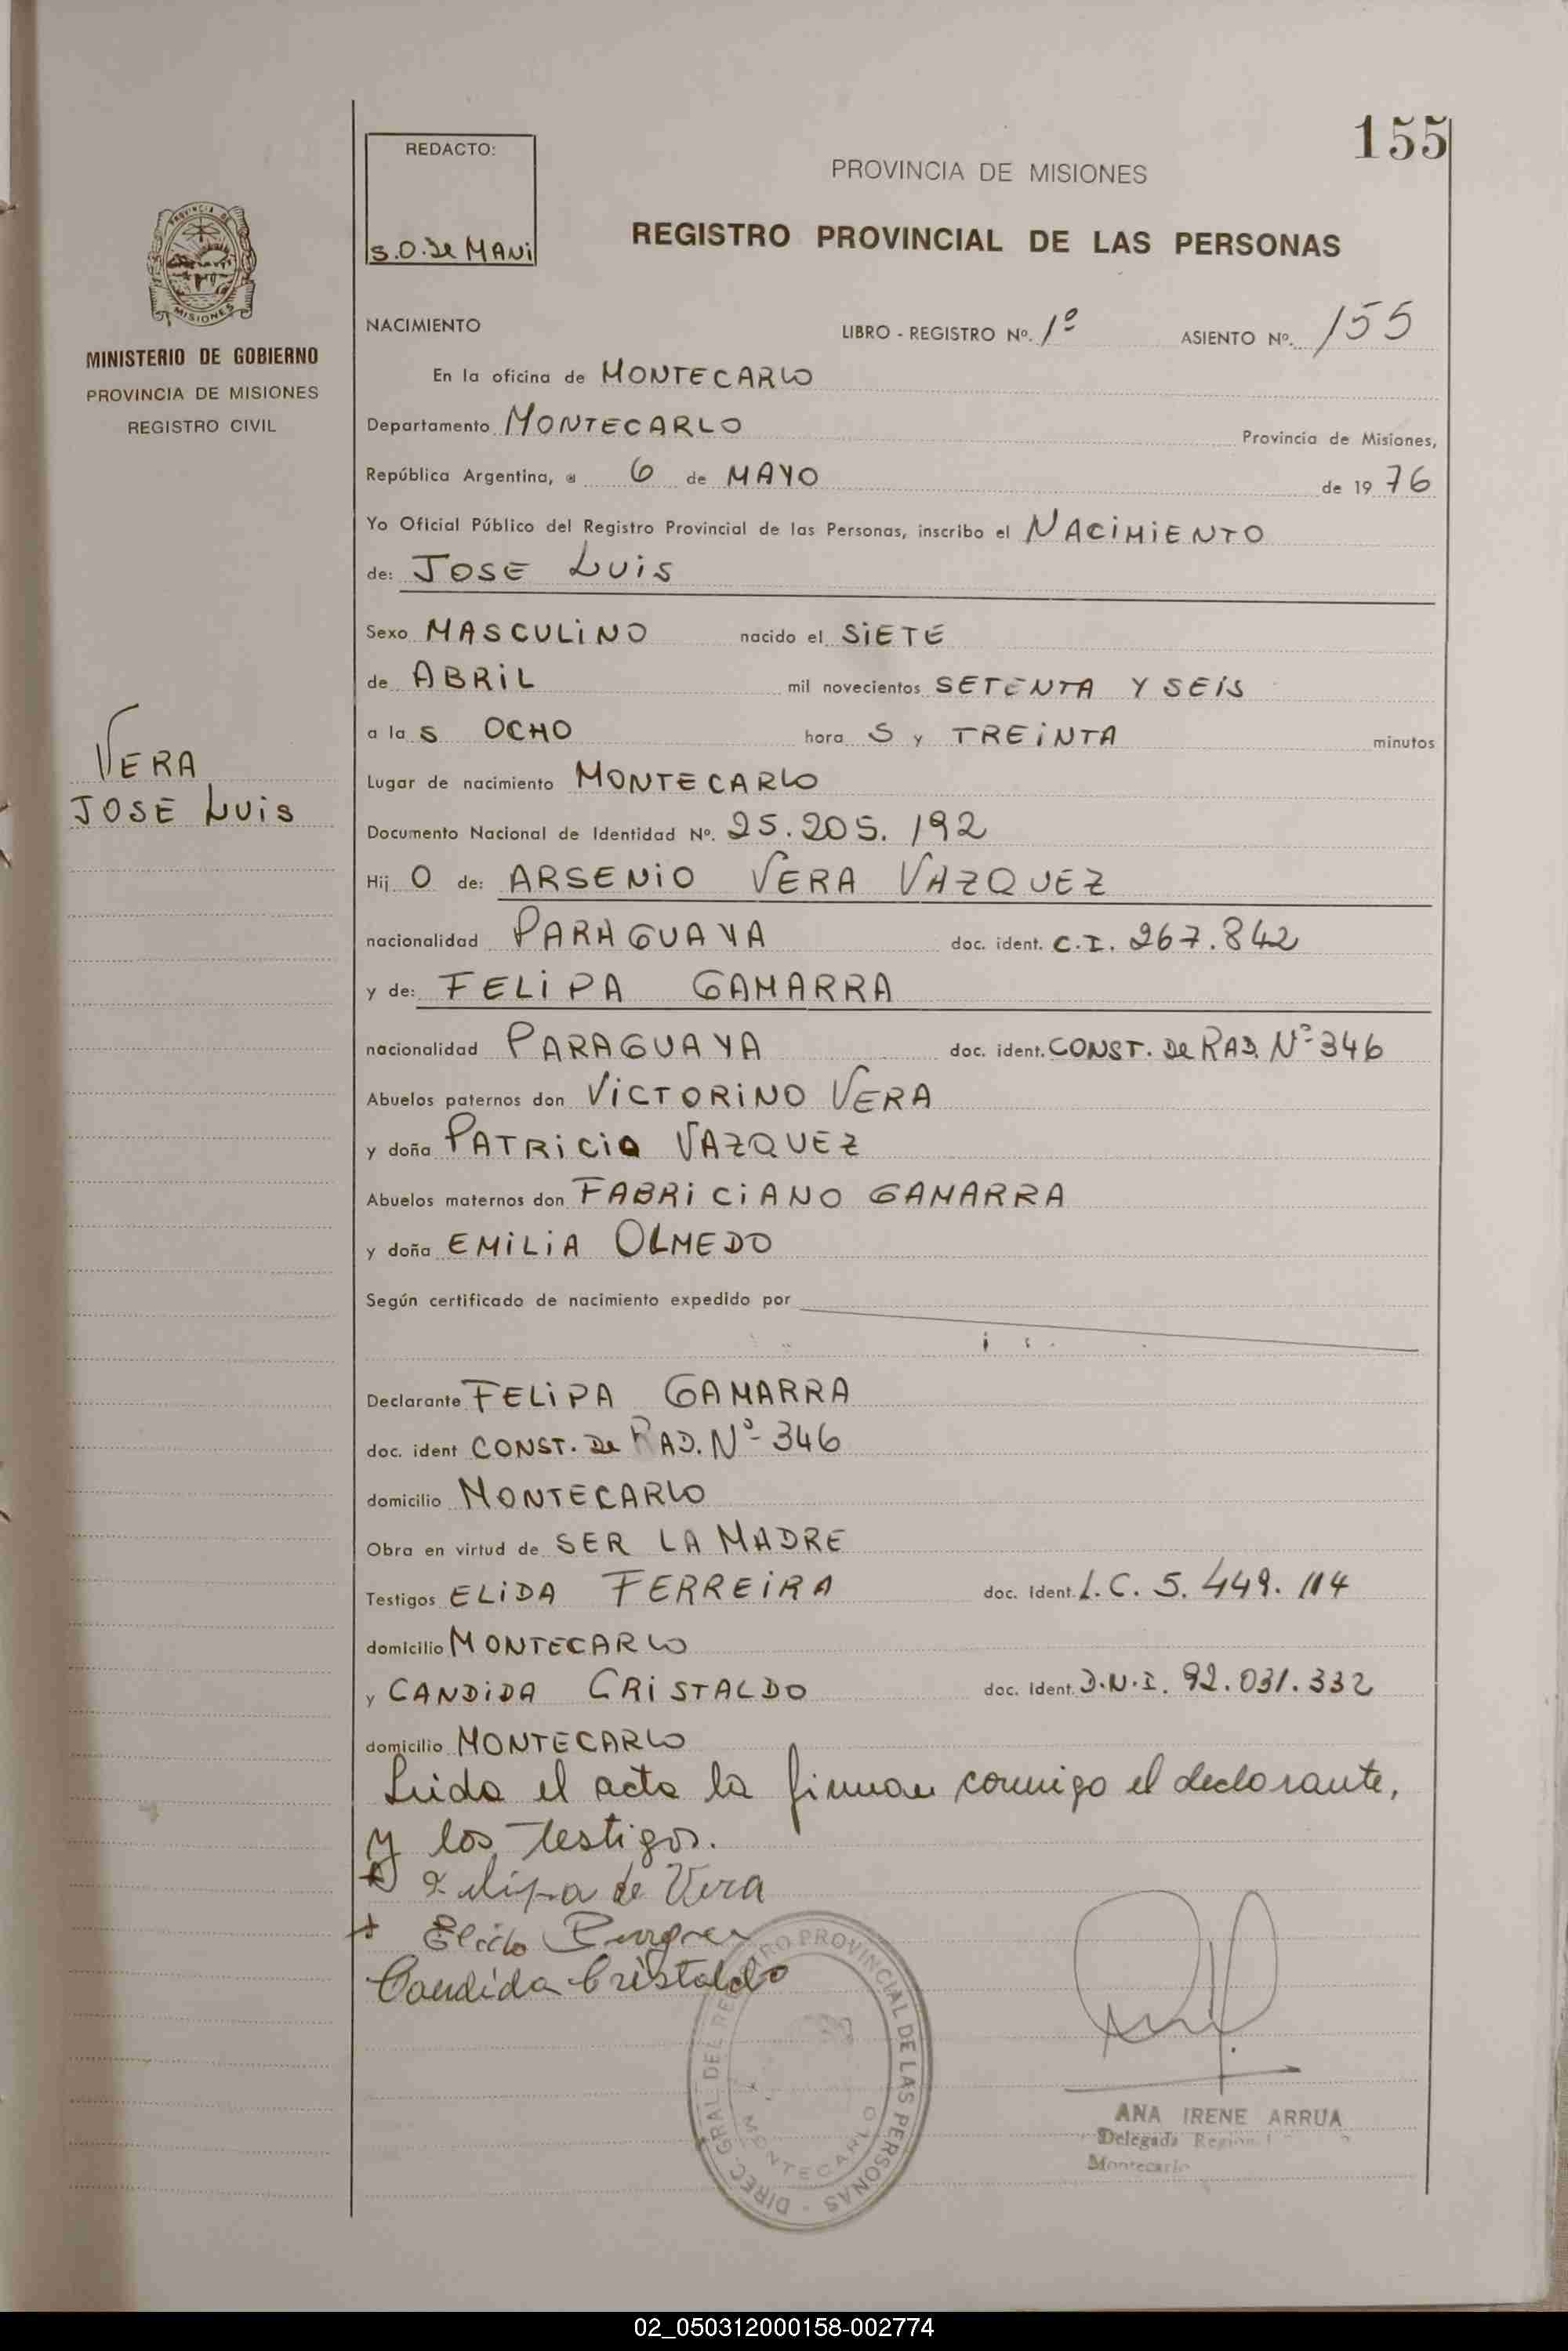 155
REDACTO:
S.O. de MANI
PROVINCIA DE MISIONES
REGISTRO PROVINCIAL DE LAS PERSONAS
MISIONES
MINISTERIO DE GOBIERNO
PROVINCIA DE MISIONES
REGISTRO CIVIL
NACIMIENTO LIBRO - REGISTRO Nº. 1º ASIENTO Nº. 155
En la oficina de MONTECARLO
Departamento MONTECARLO Provincia de Misiones,
República Argentina, a 6 de MAYO de 1976
Yo Oficial Público del Registro Provincial de las Personas, inscribo el NACIMIENTO
de: JOSE LUIS
Sexo MASCULINO nacido el SIETE
de ABRIL mil novecientos SETENTA Y SEIS
a las OCHO horas y TREINTA minutos
VERA
JOSE LUIS
Lugar de nacimiento MONTECARLO
Documento Nacional de Identidad Nº. 25.205.192
Hijo de: ARSENIO VERA VAZQUEZ
nacionalidad PARAGUAYA doc. ident. C.I. 267.842
y de: FELIPA GAMARRA
nacionalidad PARAGUAYA doc. ident. CONST. De RAD. Nº 346
Abuelos paternos don VICTORINO VERA
y doña PATRICIA VAZQUEZ
Abuelos maternos don FABRICIANO GAMARRA
y doña EMILIA OLMEDO
Según certificado de nacimiento expedido por
Declarante FELIPA GAMARRA
doc. ident CONST. De RAD. Nº 346
domicilio MONTECARLO
Obra en virtud de SER LA MADRE
Testigos ELIDA FERREIRA doc. Ident. L.C. 5.449.114
domicilio MONTECARLO
y CANDIDA CRISTALDO doc. Ident. D.N.I. 92.031.332
domicilio MONTECARLO
Leida el acta la firman conmigo el declarante,
y los testigos.
Felipa de Vera
Candida Cristaldo
DIREC. GRAL DEL REGISTRO PROVINCIAL DE LAS PERSONAS - MONTECARLO
ANA IRENE ARRUA
Delegada
Montecarlo
02_050312000158-002774